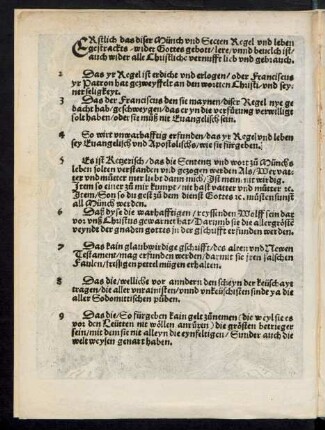 ERstlich das diser Münch vnd Secten Regel vnd leben
gestrackts wider Gottes gebott/ lere/ vnnd beuelch ist/
auch wider alle Christliche vernufft lieb vnd gebrauch.
2 Das yr Regel ist erdicht vnd erlogen/ oder Franciscus
yr Patron hat gezweyffelt an den wortten Christi/ vnd sey-
ner seligkeyt.
3 Das der Franciscus den sie maynen/ diser Regel nye ge
dacht hab/ geschweygen/ das er yn die verfürung verwilligt
solt haben/ oder sie müß nit Euangelisch sein.
4 So wirt vnwarhafftig erfunden/ das yr Regel vnd leben
sey Euangelisch vnd Apostolisch/ wie sie fürgeben.
5 Es ist Ketzerisch/ das die Sententz vnd wort zů Münchs
leben solten verstanden vnd gezogen werden Als/ Wer vat-
ter vnd můtter mer liebt dann mich/ Ist mein nit wirdig.
Item so einer zů mir kumpt/ nit hast vatter vnd můtter ꝛc.
Item/ Son so du gest zů dem dienst Gottes ꝛc. müsten sunst
all Münch werden.
6 Daß dyse die warhafftigen/ reyssenden Wolff sein dar
vor vnß Christus gewarnet hat/ Darumb sie die allergröste
veyndt der gnaden gottes in der gschrifft erfunden werden.
7 Das kain glaubwirdige gschrifft/ des alten vnd Newen
Testament/ mag erfunden werden/ darmit sie iren falschen
Faulen/ fressigen pettel mügen erhalten.
8 Das die/ welliche vor anndern den scheyn der keüschayt
tragen/ die aller vnrainisten/ vnnd vnkeüschisten sindt ya die
aller Sodomittischen půben.
9 Das die/ So fürgeben kain gelt zůnemen (die weyl sie es
vor den Leütten nit wöllen anrüren) die grösten betrieger
sein/ mit dem sie nit alleyn die eynfeltigen/ Sunder auch die
welt weysen genart haben.